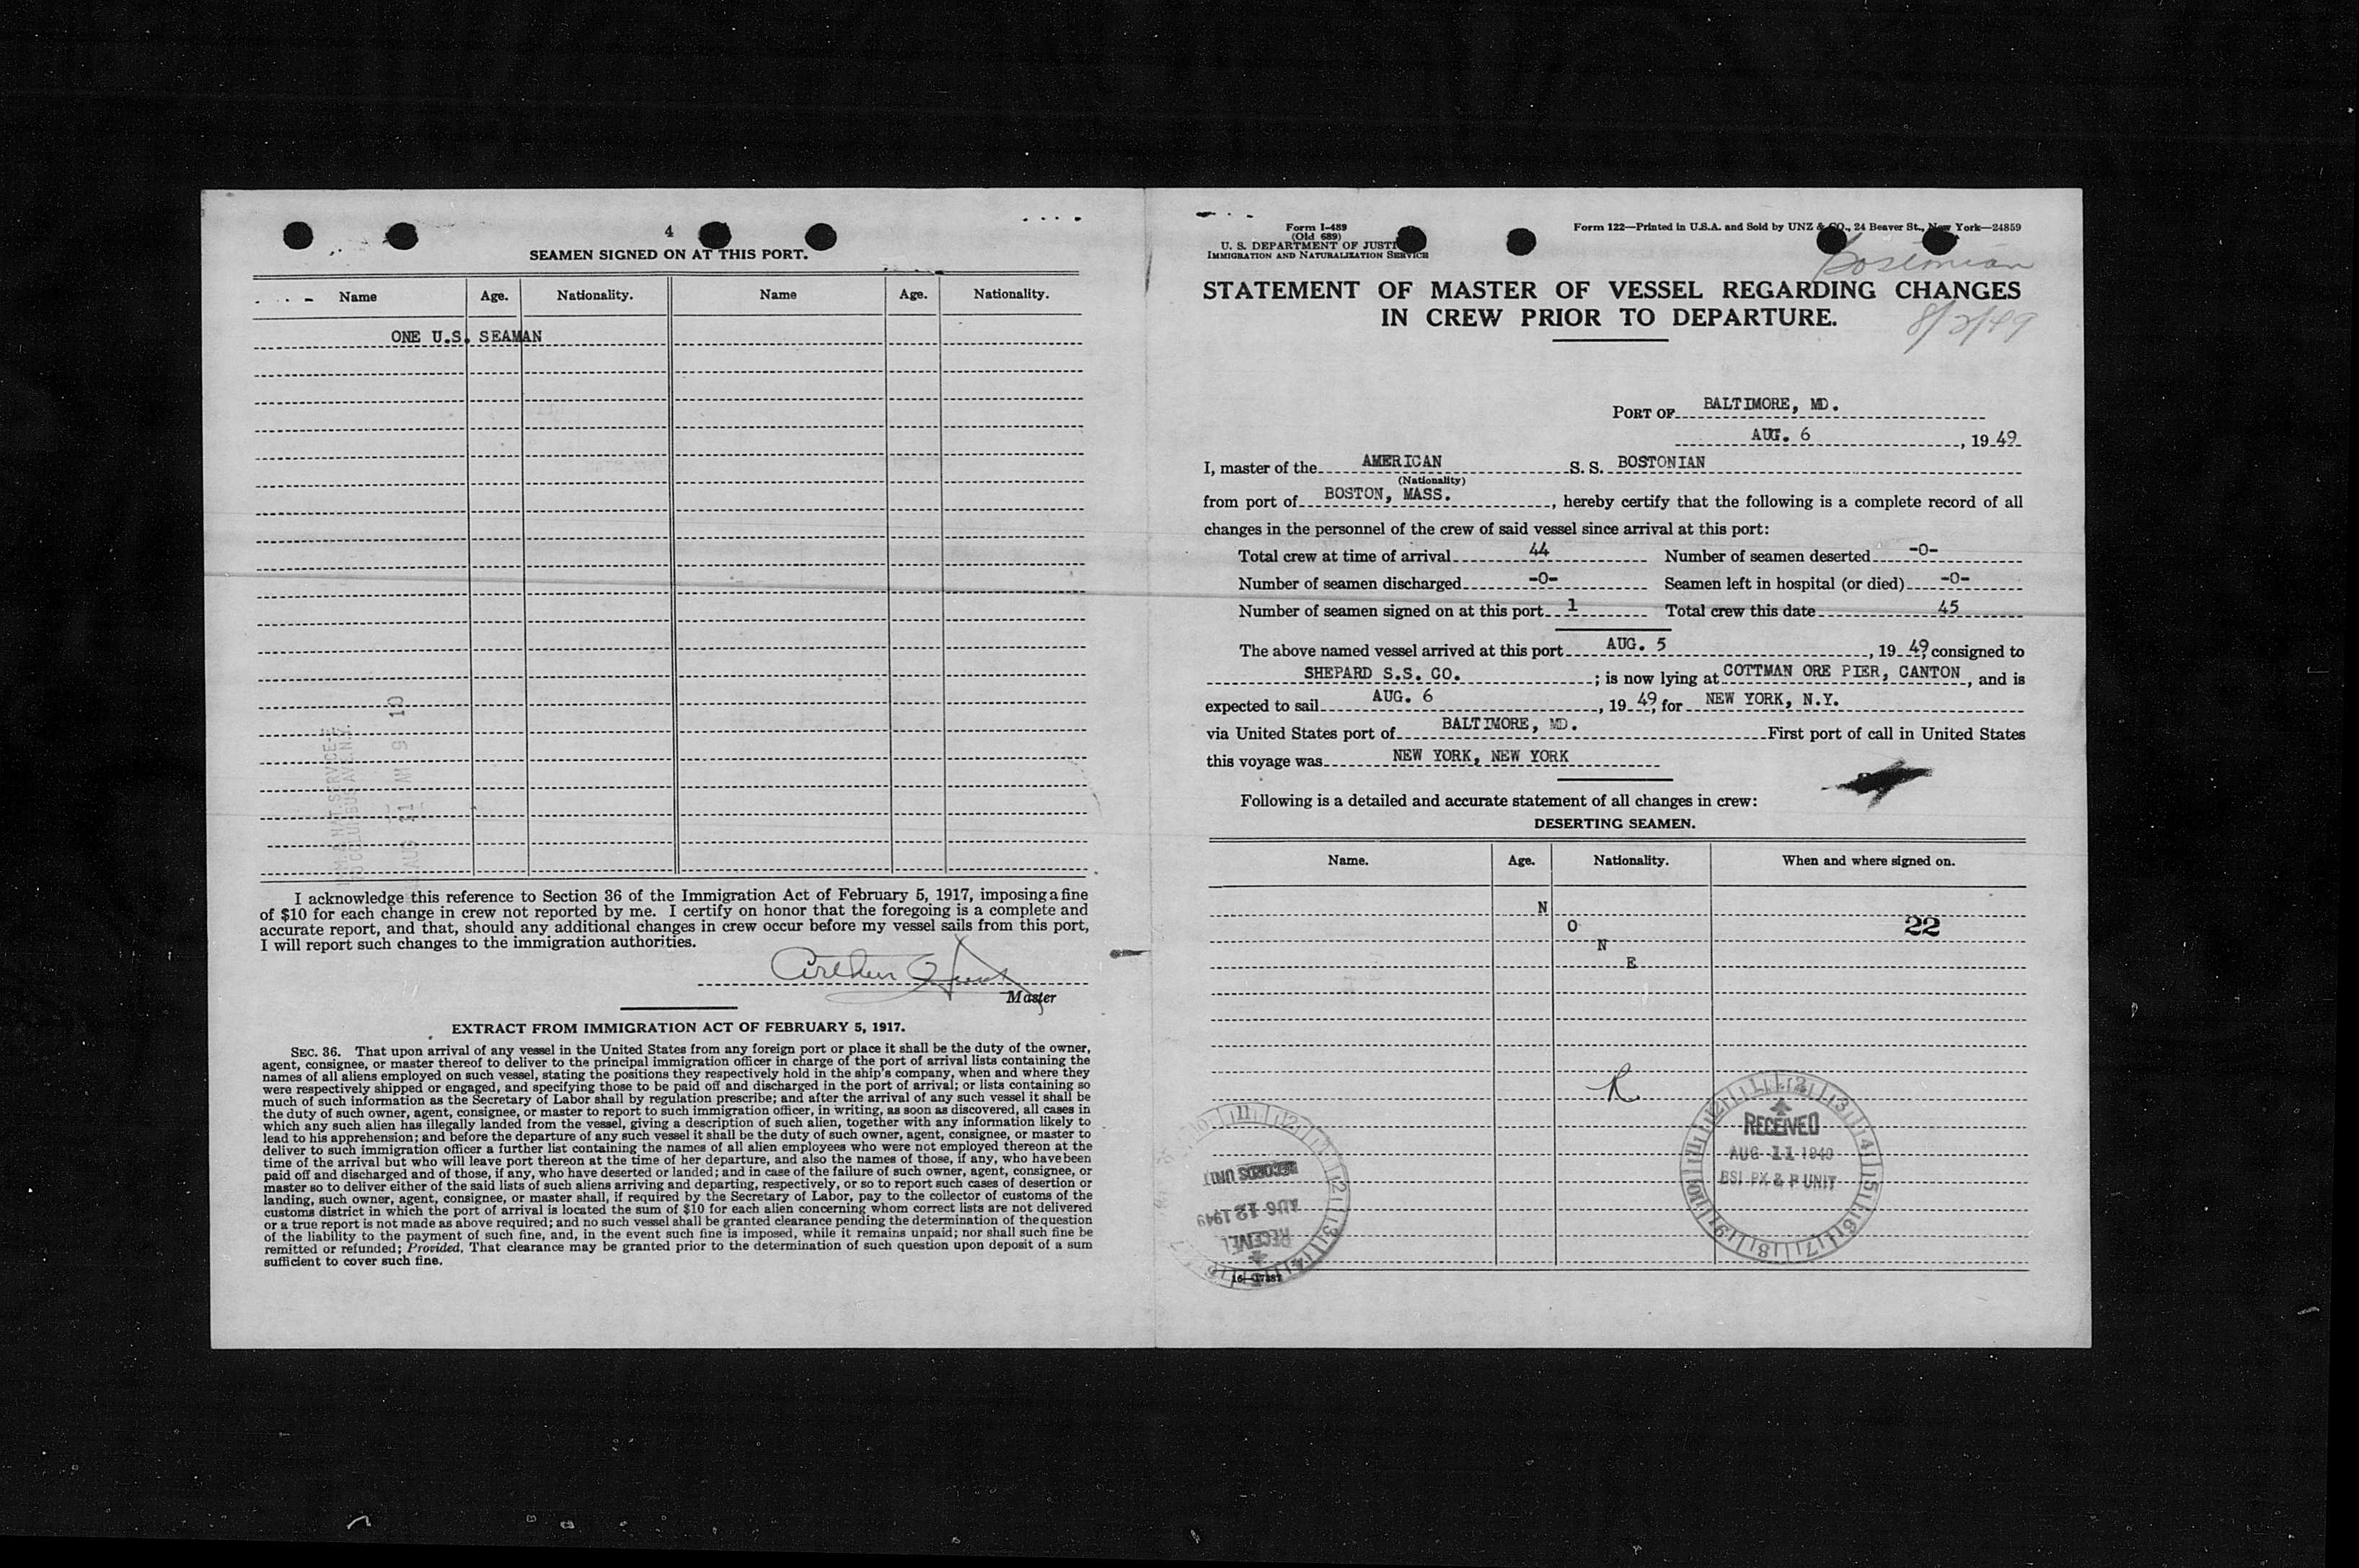 4
SEAMEN SIGNED ON AT THIS PORT.
Name Age. Nationality. Name Age. Nationality.
ONE U.S. SEAMAN
I acknowledge this reference to Section 36 of the Immigration Act of February 5, 1917, imposing a fine
of $10 for each change in crew not reported by me. I certify on honor that the foregoing is a complete and
accurate report, and that, should any additional changes in crew occur before my vessel sails from this port,
I will report such changes to the immigration authorities.
Arthur
Master
EXTRACT FROM IMMIGRATION ACT OF FEBRUARY 5, 1917.
SEC. 36. That upon arrival of any vessel in the United States from any foreign port or place it shall be the duty of the owner,
agent, consignee, or master thereof to deliver to the principal immigration officer in charge of the port of arrival lists containing the
names of all aliens employed on such vessel, stating the positions they respectively hold in the ship's company, when and where they
were respectively shipped or engaged, and specifying those to be paid off and discharged in the port of arrival; or lists containing so
much of such information as the Secretary of Labor shall by regulation prescribe; and after the arrival of any such vessel it shall be
the duty of such owner, agent, consignee, or master to report to such immigration officer, in writing, as soon as discovered, all cases in
which any such alien has illegally landed from the vessel, giving a description of such alien, together with any information likely to
lead to his apprehension; and before the departure of any such vessel it shall be the duty of such owner, agent, consignee, or master to
deliver to such immigration officer a further list containing the names of all alien employees who were not employed thereon at the
time of the arrival but who will leave port thereon at the time of her departure, and also the names of those, if any, who have been
paid off and discharged and of those, if any, who have deserted or landed; and in case of the failure of such owner, agent, consignee, or
master so to deliver either of the said lists of such aliens arriving and departing, respectively, or so to report such cases of desertion or
landing, such owner, agent, consignee, or master shall, if required by the Secretary of Labor, pay to the collector of customs of the
customs district in which the port of arrival is located the sum of $10 for each alien concerning whom correct lists are not delivered
or a true report is not made as above required; and no such vessel shall be granted clearance pending the determination of the question
of the liability to the payment of such fine, and, in the event such fine is imposed, while it remains unpaid; nor shall such fine be
remitted or refunded; Provided, That clearance may be granted prior to the determination of such question upon deposit of a sum
sufficient to cover such fine.
Form I-489
(Old 689)
U. S. DEPARTMENT OF JUSTI
IMMIGRATION AND NATURALIZATION SERVICE
Form 122—Printed in U.S.A. and Sold by UNZ & CO., 24 Beaver St., New York—24859
Bostonian
STATEMENT OF MASTER OF VESSEL REGARDING CHANGES
IN CREW PRIOR TO DEPARTURE.
8/2/49
PORT OF BALTIMORE, MD.
AUG. 6, 19 49
I, master of the AMERICAN S. S. BOSTONIAN
(Nationality)
from port of BOSTON, MASS., hereby certify that the following is a complete record of all
changes in the personnel of the crew of said vessel since arrival at this port:
Total crew at time of arrival 44 Number of seamen deserted -0-
Number of seamen discharged -0- Seamen left in hospital (or died) -0-
Number of seamen signed on at this port 1 Total crew this date 45
The above named vessel arrived at this port AUG. 5, 19 49, consigned to
SHEPARD S.S. CO.; is now lying at COTTMAN ORE PIER, CANTON, and is
expected to sail AUG. 6, 19 49, for NEW YORK, N.Y.
via United States port of BALTIMORE, MD. First port of call in United States
this voyage was NEW YORK, NEW YORK
Following is a detailed and accurate statement of all changes in crew:
DESERTING SEAMEN.
Name. Age. Nationality. When and where signed on.
N
O
22
N
E
R
RECEIVED
AUG 11 1949
BSI PX & P UNIT
RECORDS UNIT
AUG 12 1949
16—17387